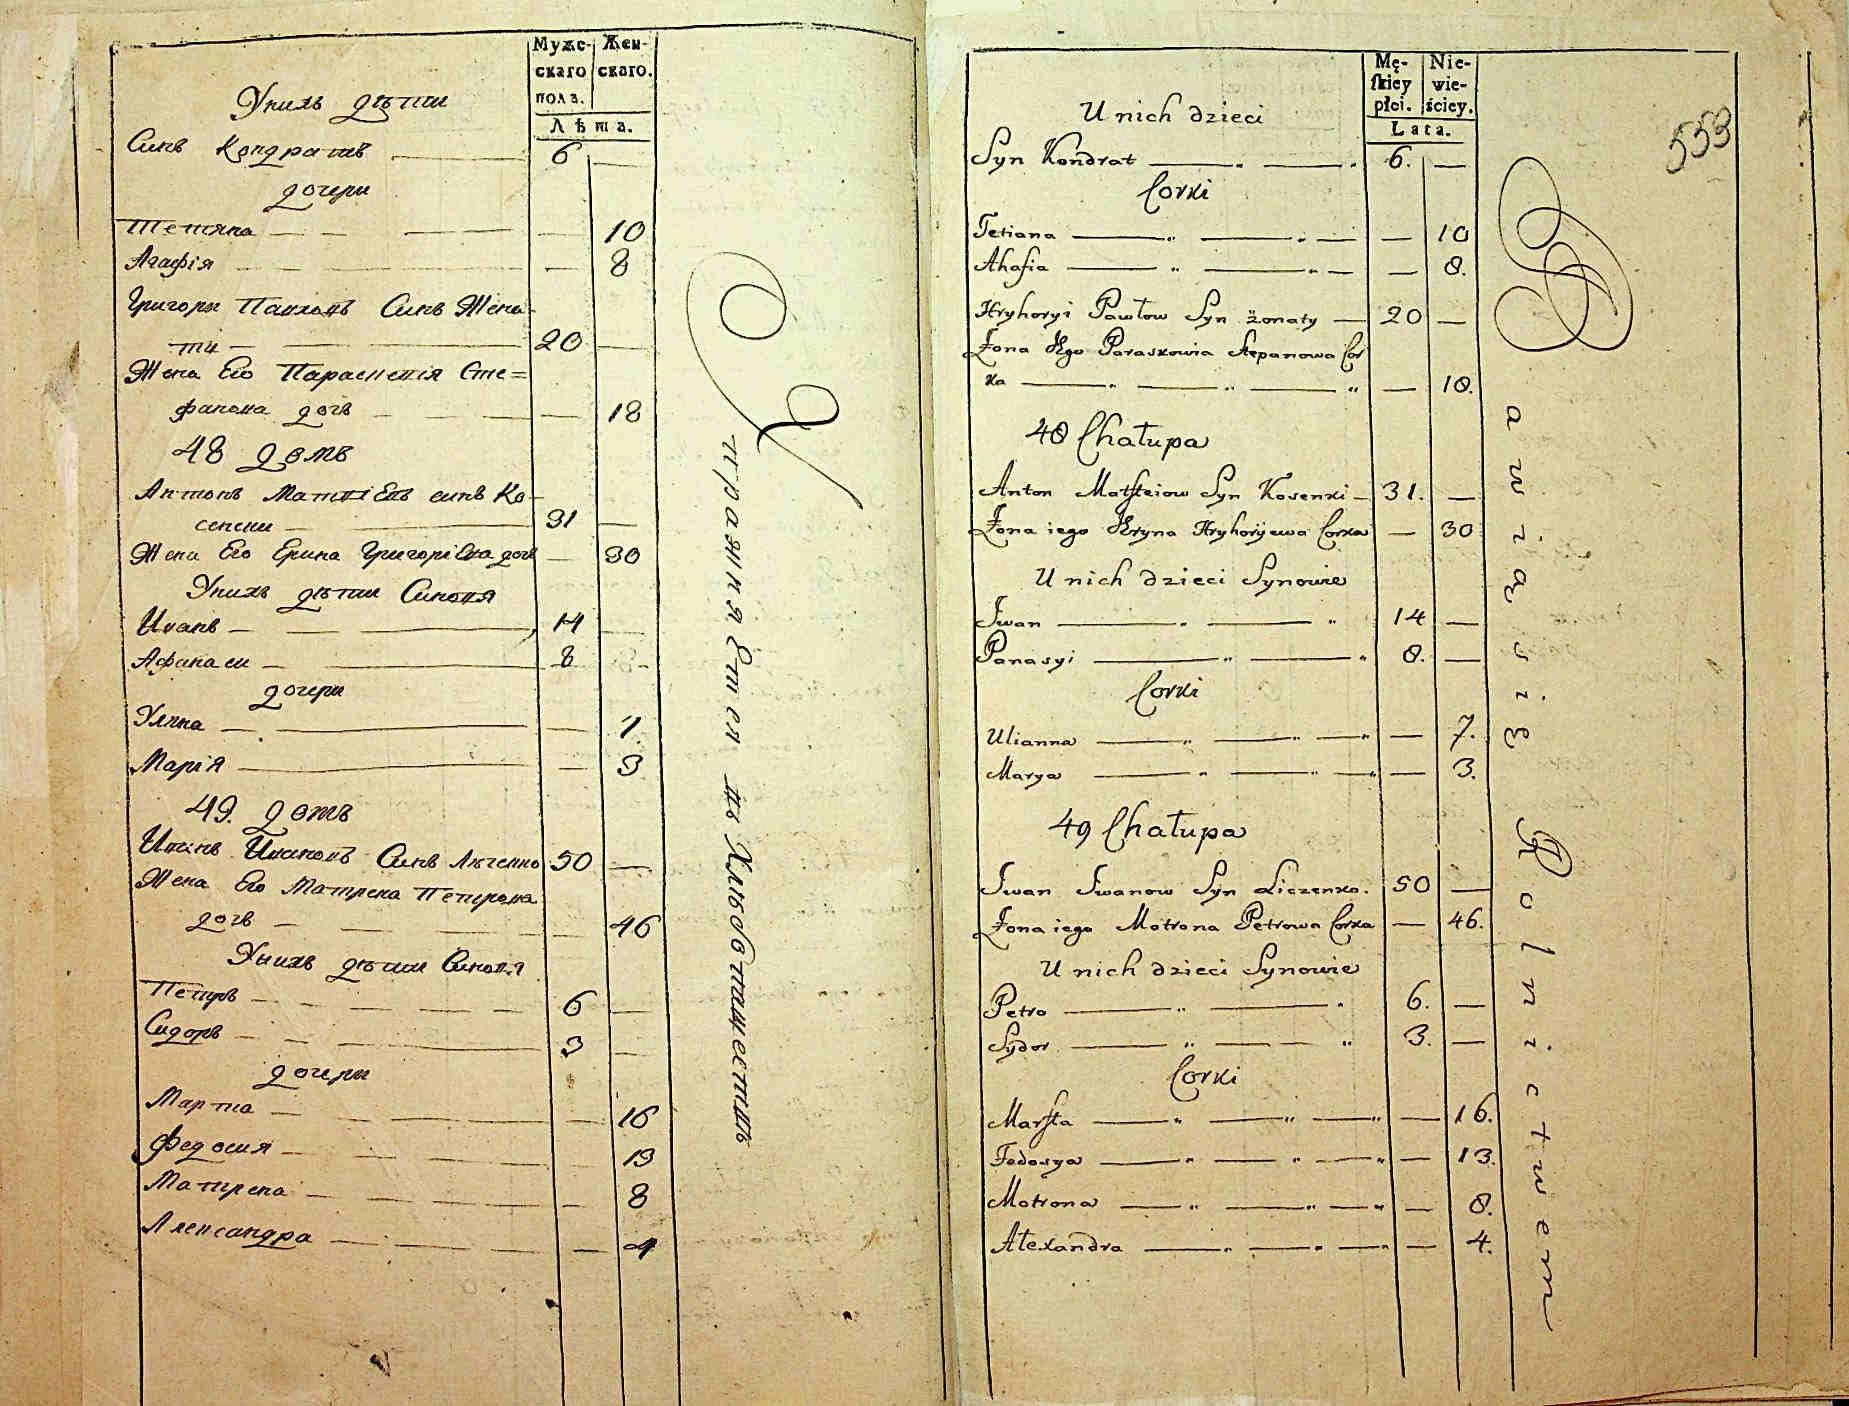 Муже-
скаго
пола.
Жен-
скаго.
Лѣта.
Унихъ дѣти
Синъ Кондратъ 6
дочери
Тетяна 10
Агафія 8
Григори Павловъ Синъ Жена-
ти 20
Жена Его Параскевія Сте=
фанова дочь 18
48 домъ
Антонъ Матвіевъ синъ Ко-
сенски 31
Жена Его Ерина Григоріева дочь 30
Унихъ дѣти Синовя
Иванъ 14
Афанаси 8
дочери
Уляна 7
Марія 3
49. домъ
Иванъ Ивановъ Синъ Личенко 50
Жена Его Матрена Петрова
дочь 46
Унихъ дѣти Синовя
Петръ 6
Сидоръ 3
дочери
Марта 16
Федосия 13
Матрена 8
Александра 4
Упражняется въ Хлѣбопашествѣ
Mę-
skiey
płci.
Nie-
wie-
ściey.
Lata.
553
U nich dzieci
Syn Kondrat 6.
Corki
Tetiana 10
Ahafia 8.
Hryhoryi Pawłow Syn żonaty 20
Żona Jego Paraskowia Stepanowa Cor
ka 18.
48 Chałupa
Anton Matfieiow Syn Kosenki 31.
Żona iego Jryna Hryhoryiewa Corka 30
U nich dzieci Synowie
Jwan 14
Panasyi 8.
Corki
Ulianna 7.
Marya 3.
49 Chałupa
Jwan Jwanow Syn Liczenko. 50
Żona iego Motrona Petrowa Corka 46.
U nich dzieci Synowie
Petro 6.
Sydor 3.
Corki
Marfta 16.
Fedosya 13.
Motrona 8.
Alexandra 4.
Bawią się Rolnictwem